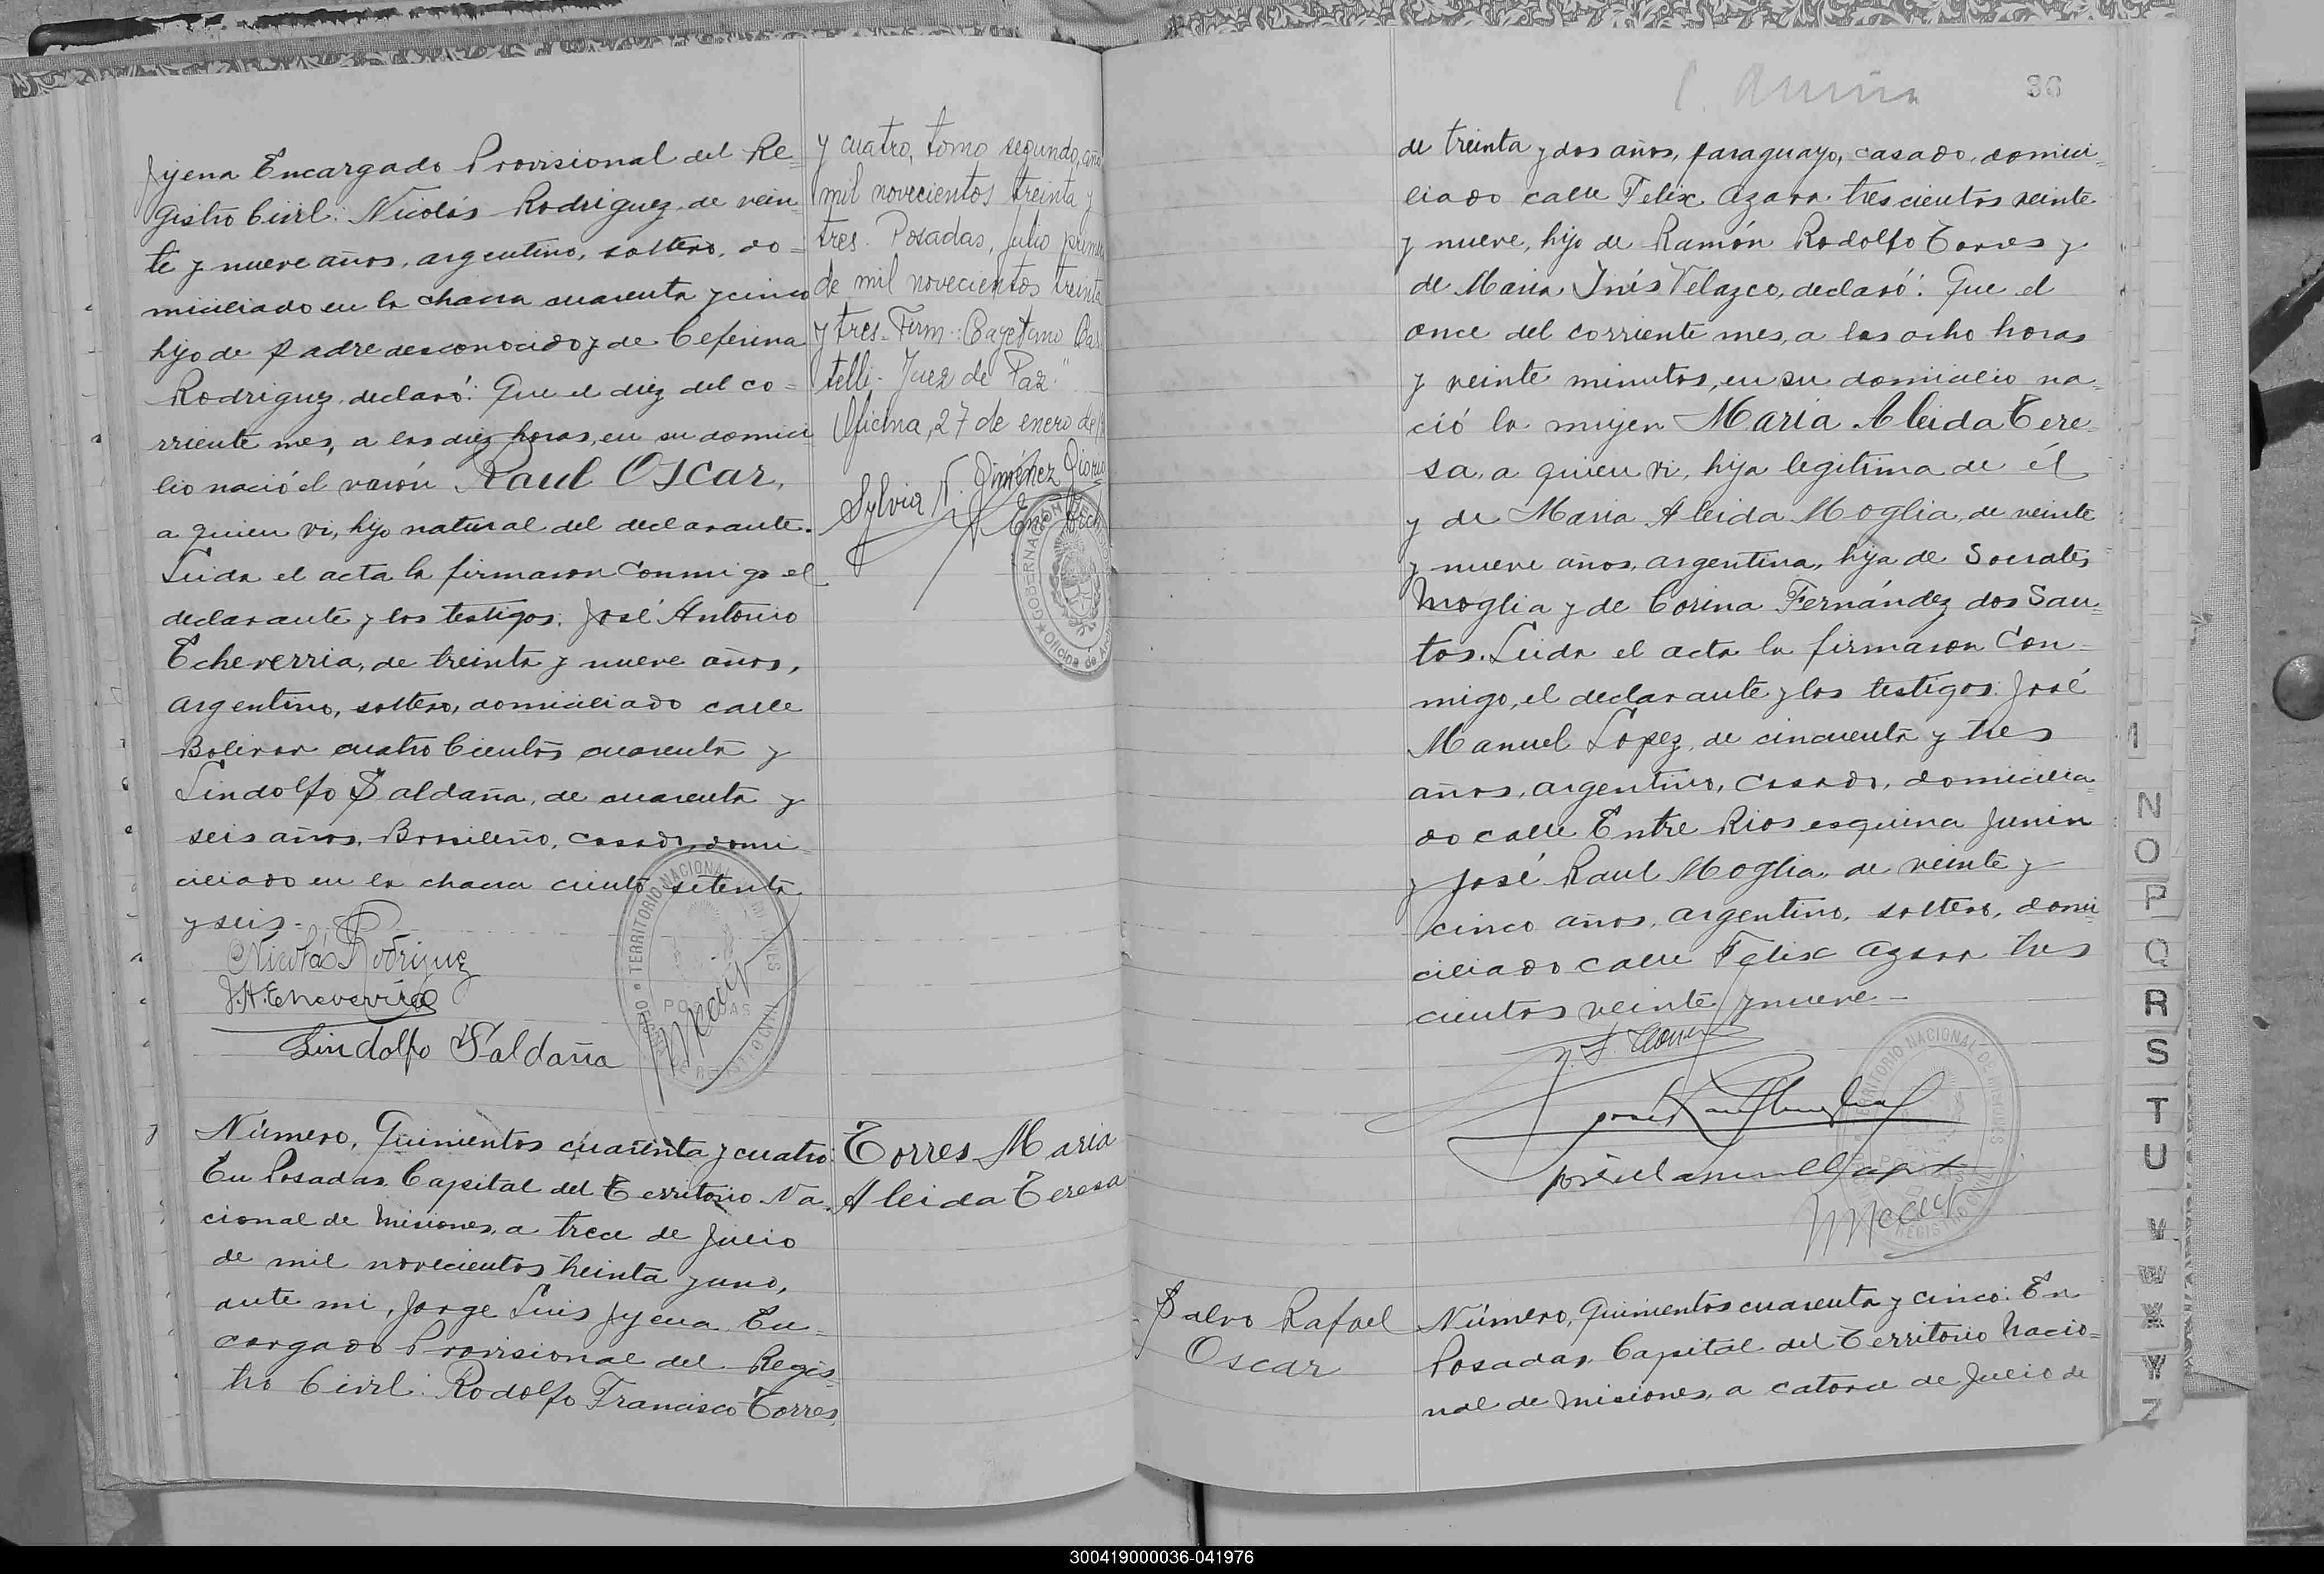 Jijena Encargado Provisional del Re-
gistro Civil: Nicolás Rodriguez, de vein-
te y nueve años, argentino, soltero, do-
miciliado en la chacra cuarenta y cinco
hijo de padre desconocido y de Ceferina
Rodriguez, declaró: Que el diez del co-
rriente mes, a las diez horas, en su domici
lio nació el varón Raul Oscar,
a quien vi, hijo natural del declarante.
Leida el acta la firmaron conmigo el
declarante y los testigos: José Antonio
Echeverria, de treinta y nueve años,
argentino, soltero, domiciliado calle
Bolivar cuatro cientos cuarenta y
Lindolfo Saldaña, de cuarenta y
seis años, Brasileño, casado, domi-
ciliado en la chacra ciento setenta
y seis.-
Nicolás Rodriguez
J.A. Echeverria
Lindolfo Saldaña
TERRITORIO NACIONAL DE MISIONES
POSADAS
REGISTRO CIVIL
y cuatro, tomo segundo, año
mil novecientos treinta y
tres. Posadas, Julio primero
de mil novecientos treinta
y tres. Firm.: Cayetano Cas
telli - Juez de Paz."
Oficina, 27 de enero de
Sylvia N. Jiménez
GOBERNACION
Oficina de
Número, Quinientos cuarenta y cuatro:
En Posadas, Capital del Territorio Na-
cional de Misiones, a trece de Julio
de mil novecientos treinta y uno,
ante mi, Jorge Luis Jijena, En-
cargado Provisional del Regis-
tro Civil: Rodolfo Francisco Torres,
Torres Maria
Aleida Teresa
36
de treinta y dos años, paraguayo, casado, domici-
liado calle Felix Azara trescientos veinte
y nueve, hijo de Ramón Rodolfo Torres y
de Maria Inés Velazco, declaró: Que el
once del corriente mes, a las ocho horas
y veinte minutos, en su domicilio na-
ció la mujer Maria Aleida Tere-
sa, a quien vi, hija legitima de él
y de Maria Aleida Moglia, de veinte
y nueve años, argentina, hija de Socrates
Moglia y de Corina Fernández dos San-
tos. Leida el acta la firmaron con-
migo, el declarante y los testigos: José
Manuel Lopez, de cincuenta y tres
años, argentino, casado, domicilia-
do calle Entre Rios esquina Junin
y José Raul Moglia, de veinte y
cinco años, argentino, soltero, domi-
ciliado calle Felix Azara tres
cientos veinte y nueve.-
José Raul Moglia
José Manuel Lopez
TERRITORIO NACIONAL DE MISIONES
POSADAS
REGISTRO CIVIL
Salvo Rafael
Oscar
Número, Quinientos cuarenta y cinco: En
Posadas, Capital del Territorio Nacio-
nal de Misiones, a catorce de Julio de
I
N
O
P
Q
R
S
T
U
V
W
X
Y
Z
300419000036-041976